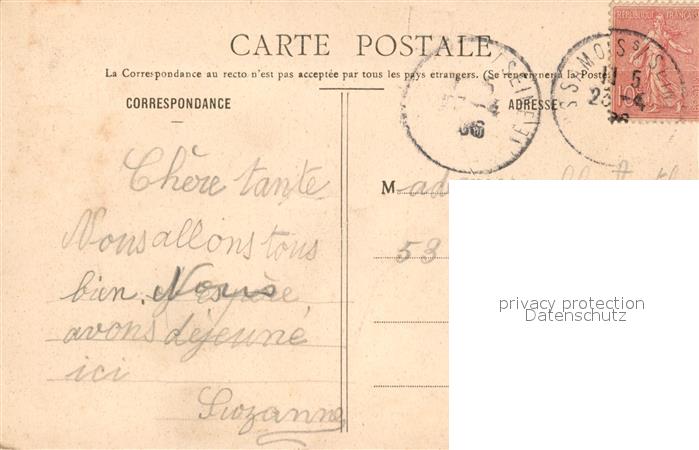 RÉPUBLIQUE FRANÇAISE
CARTE POSTALE
La Correspondance au recto n'est pas acceptée par tous les pays etrangers. (Se renseigner à la Poste
CORRESPONDANCE
ADRESSE
11 5
23 - 4
10
Chère tante
M adame
Nous allons tous
53
bien. Nous
avons déjeuné
ici
Suzanne
privacy protection
Datenschutz